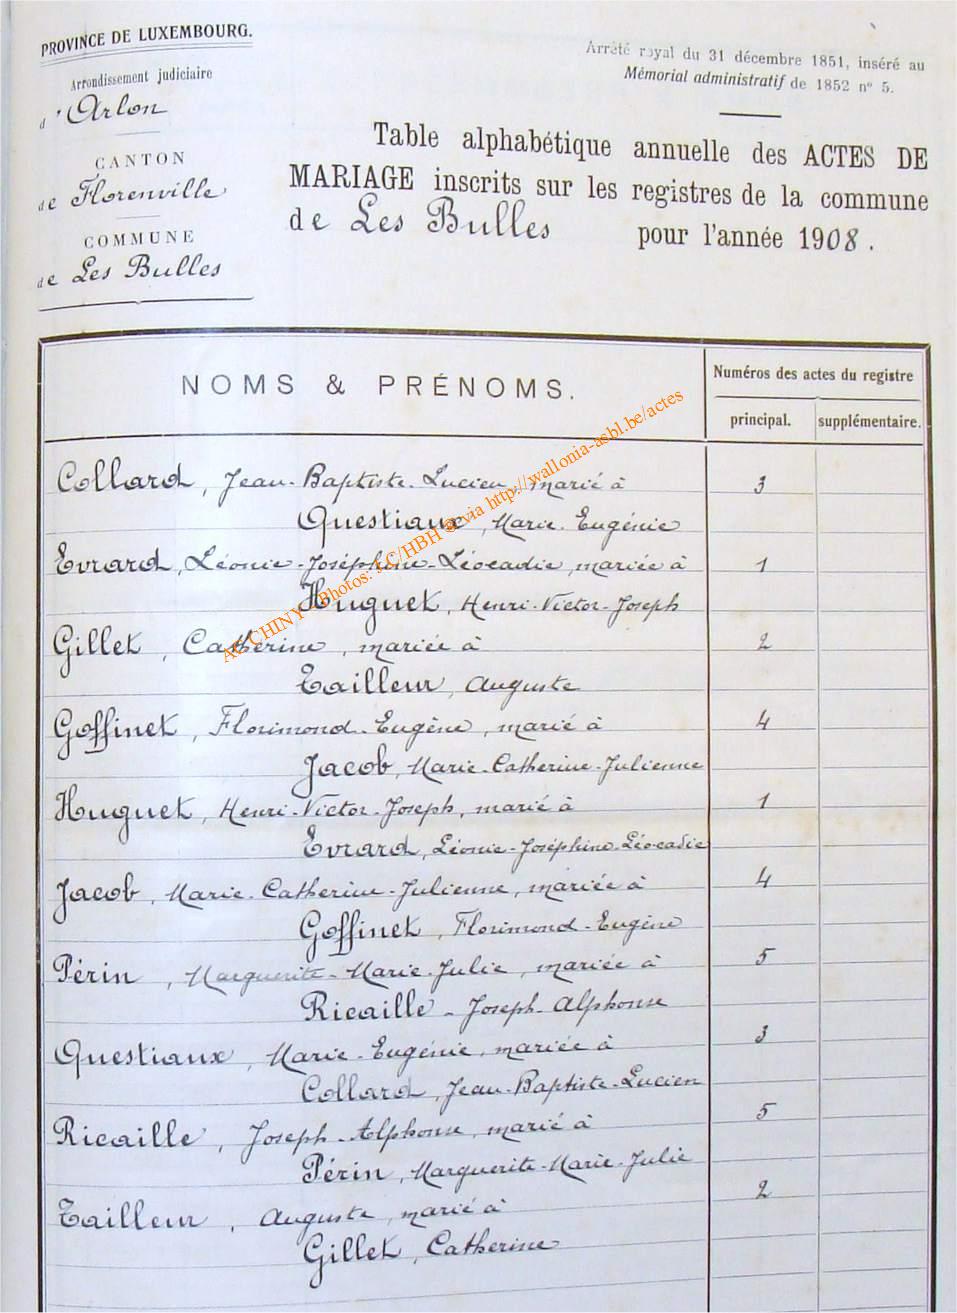 PROVINCE DE LUXEMBOURG.
Arrondissement judiciaire
d'Arlon
CANTON
de Florenville
COMMUNE
de Les Bulles
Arrêté royal du 31 décembre 1851, inséré au
Mémorial administratif de 1852 n° 5.
Table alphabétique annuelle des ACTES DE
MARIAGE inscrits sur les registres de la commune
de Les Bulles pour l'année 1908.
NOMS & PRÉNOMS.
Numéros des actes du registre
principal. supplémentaire.
Collard, Jean-Baptiste-Lucien, marié à 3
Questiaux, Marie-Eugénie
Evrard, Léonie-Joséphine-Léocadie, mariée à 1
Huguet, Henri-Victor-Joseph
Gillet, Catherine, mariée à 2
Tailleur, Auguste
Goffinet, Florimond-Eugène, marié à 4
Jacob, Marie-Catherine-Julienne
Huguet, Henri-Victor-Joseph, marié à 1
Evrard, Léonie-Joséphine-Léocadie
Jacob, Marie-Catherine-Julienne, mariée à 4
Goffinet, Florimond-Eugène
Périn, Marguerite-Marie-Julie, mariée à 5
Ricaille - Joseph-Alphonse
Questiaux, Marie-Eugénie, mariée à 3
Collard, Jean-Baptiste-Lucien
Ricaille, Joseph-Alphonse, marié à 5
Périn, Marguerite-Marie-Julie
Tailleur, Auguste, marié à 2
Gillet, Catherine
Photos: J.C/HBH @ via http://wallonia-asbl.be/actes